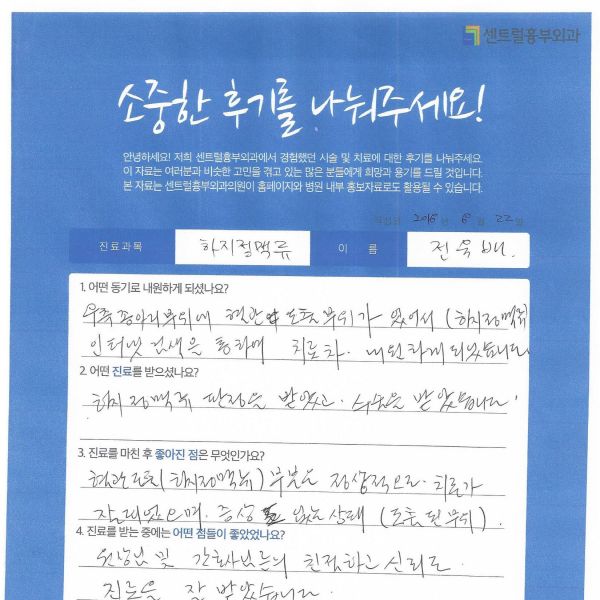 센트럴흉부외과
소중한 후기를 나눠주세요!
안녕하세요! 저희 센트럴흉부외과에서 경험했던 시술 및 치료에 대한 후기를 나눠주세요
이 자료는 여러분과 비슷한 고민을 겪고 있는 많은 분들에게 희망과 용기를 드릴 것입니다.
본 자료는 센트럴흉부외과의원이 홈페이지와 병원 내부 홍보자료로도 활용될 수 있습니다.
작성일 2016 년 6 월 22 일
진료과목 하지정맥류 이 름 전욱배.
1. 어떤 동기로 내원하게 되셨나요?
우측 종아리부위에 혈관 도출부위가 있어서 (하지정맥류)
인터넷 검색을 통하여 치료차. 내원하게 되었습니다
2. 어떤 진료를 받으셨나요?
하지정맥류 판정을 받았고. 수술을 받았습니다.
3. 진료를 마친 후 좋아진 점은 무엇인가요?
혈관도출(하지정맥류)부분은 정상적으로 치료가
잘되었으며. 증상 없는 상태 (도출된 부위).
4. 진료를 받는 중에는 어떤 점들이 좋았었나요?
원장님 및 간호사님들의 친절하고 신뢰도.
진료를 잘 받았습니다.